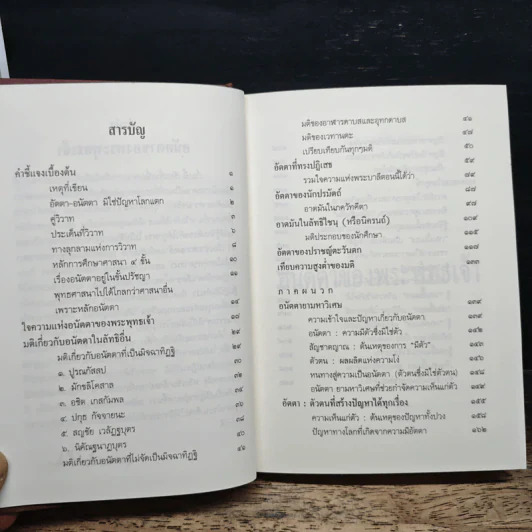 สารบัญ
คำชี้แจงเบื้องต้น ๑
เหตุที่เขียน ๑
อัตตา-อนัตตา มิใช่ปัญหาโลกแตก ๒
คู่วิวาท ๓
ประเด็นที่วิวาท ๖
ทางลุกลามแห่งการวิวาท ๘
หลักการศึกษาศาสนา ๔ ชั้น ๑๐
เรื่องอนัตตาอยู่ในชั้นปรัชญา ๑๑
พุทธศาสนาไปได้ไกลกว่าศาสนาอื่น
เพราะหลักอนัตตา ๑๔
ใจความแห่งอนัตตาของพระพุทธเจ้า ๑๘
มติเกี่ยวกับอนัตตาในลัทธิอื่น ๒๙
มติเกี่ยวกับอนัตตาที่เป็นมิจฉาทิฏฐิ ๓๐
๑. ปูรณกัสสป ๓๒
๒. มักขลิโคสาล ๓๔
๓. อชิต เกสกัมพล ๓๖
๔. ปกุธ กัจจายนะ ๓๘
๕. สญชัย เวลัฏฐบุตร
๖. นิคัณฐนาฏบุตร ๔๐
มติเกี่ยวกับอนัตตาที่ไม่จัดเป็นมิจฉาทิฏฐิ ๔๑
มติของอาฬารดาบสและอุทกดาบส ๔๒
มติของเวทานตะ ๔๗
เปรียบเทียบกันทุกๆมติ ๕๖
อัตตาที่ทรงปฏิเสธ ๕๙
รวมใจความแห่งพระบาลีตอนนี้ได้ว่า ๗๙
อัตตาของนักปรมัตถ์ ๙๐
อาตมันในภควัทคีตา
อาตมันในลัทธิไชนะ (หรือนิครนถ์) ๑๐๙
มติประกอบของนักศึกษา ๑๑๕
อัตตาของปราชญ์ตะวันตก ๑๑๗
เทียบความสูงต่ำของมติ ๑๓๓
ภาคผนวก
อนัตตายามหาวิเศษ ๑๓๙
ความเข้าใจและปัญหาเกี่ยวกับอนัตตา
อนัตตา : ความมีตัวซึ่งมิใช่ตัว ๑๔๑
สัญชาตญาณ : ต้นเหตุของการ "มีตัว"
ตัวตน : ผลผลิตแห่งความโง่
หนทางสู่ความเป็นอนัตตา (ตัวตนซึ่งมิใช่ตัวตน)
อนัตตา ยามหาวิเศษที่ช่วยกำจัดความเห็นแก่ตัว
อัตตา : ตัวตนที่สร้างปัญหาได้ทุกเรื่อง ๑๕๕
ความเห็นแก่ตัว : ต้นเหตุของปัญหาทั้งปวง ๑๕๘
ปัญหาทางโลกที่เกิดจากความมีอัตตา ๑๖๒